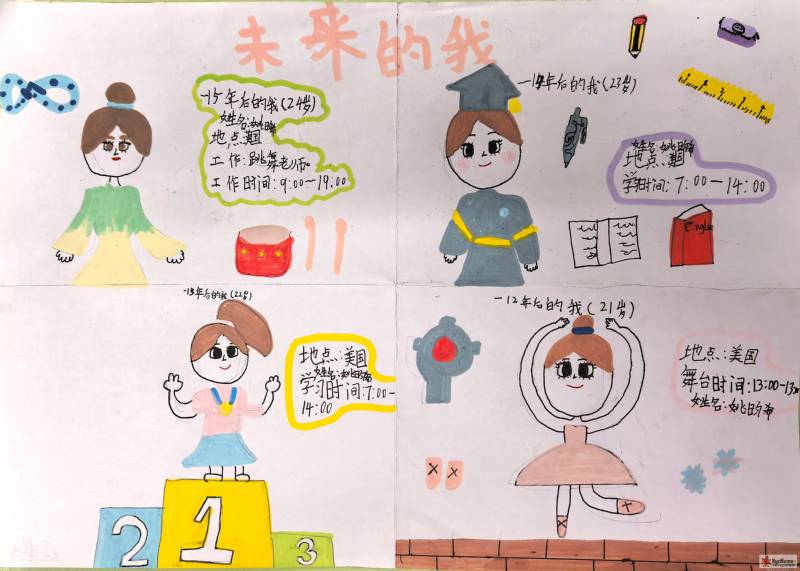 未来的我
一15年后的我(24岁)
姓名:姚
地点:美国
工作:跳舞老师。
工作时间:9:00—19:00
一14年后的我(23岁)
姓名:姚
地点:美国
学习时间:7:00—14:00
一13年后的我(22岁)
地点:美国
姓名:姚昀希
学习时间:7:00—
14:00
2
1
3
一12年后的我(21岁)
地点:美国
舞台时间:13:00—13:
姓名:姚昀希